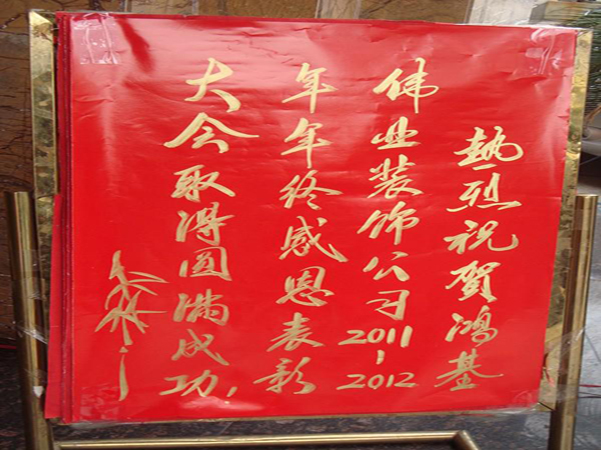 热烈祝贺鸿基
伟业装饰公司2011-2012
年年终感恩表彰
大会取得圆满成功,